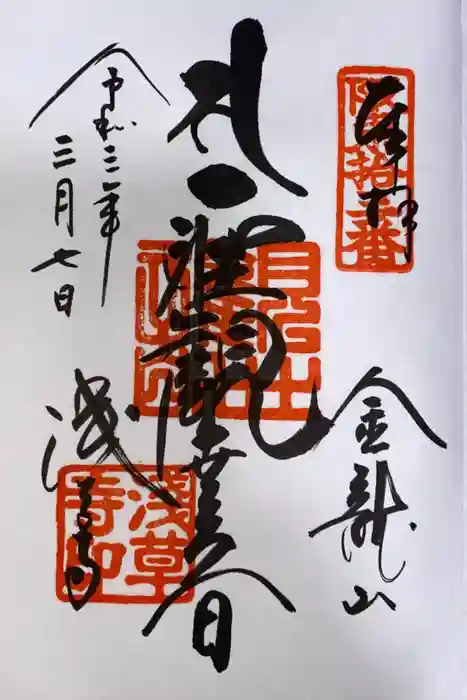 奉拝
坂東拾三番
金龍山
聖観世音
浅草寺
浅草寺印
令和三年
三月七日